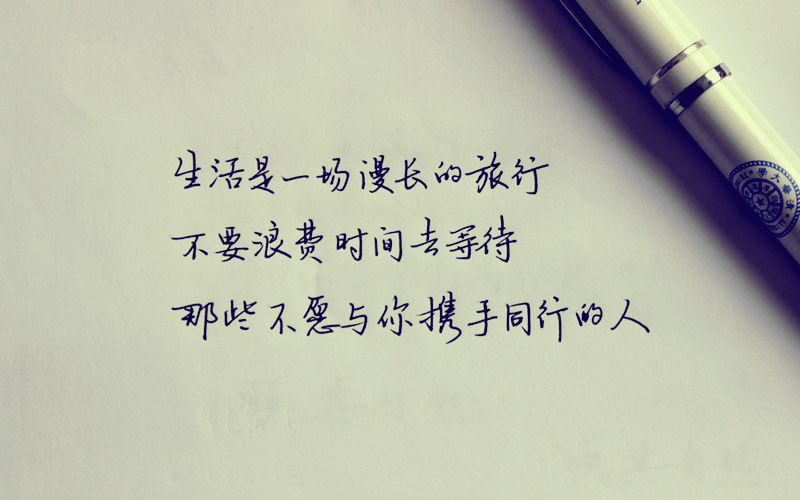 生活是一场漫长的旅行
不要浪费时间去等待
那些不愿与你携手同行的人